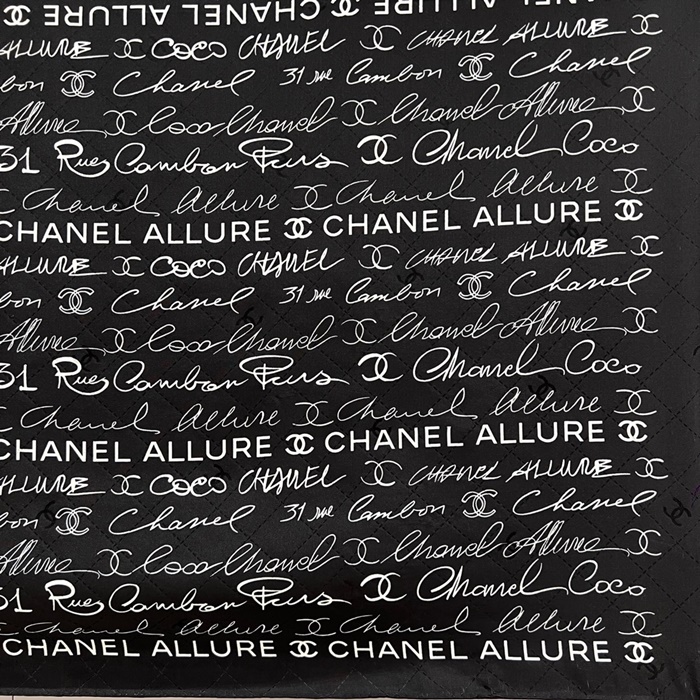 CHANEL ALLURE CHANEL ALLURE
ALLURE COCO CHANEL CHANEL ALLURE
bon Chanel 31 rue Cambon Chanel
Allure Coco Chanel Chanel Allure
31 Rue Cambon Paris Chanel Coco
Chanel Allure Chanel Allure
CHANEL ALLURE CHANEL ALLURE
ALLURE COCO CHANEL CHANEL ALLURE
bon Chanel 31 rue Cambon Chanel
Allure Coco Chanel Chanel Allure
31 Rue Cambon Paris Chanel Coco
Chanel Allure Chanel Allure
CHANEL ALLURE CHANEL ALLURE
ALLURE COCO CHANEL CHANEL ALLURE
bon Chanel 31 rue Cambon Chanel
Allure Coco Chanel Chanel Allure
31 Rue Cambon Paris Chanel Coco
Chanel Allure Chanel Allure
CHANEL ALLURE CHANEL ALLURE